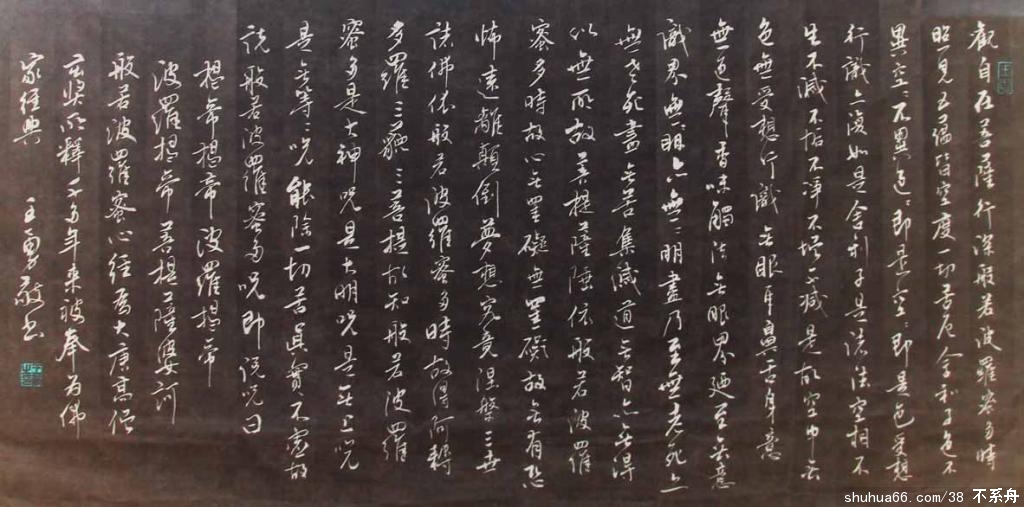 觀自在菩薩行深般若波羅密多時
照見五蘊皆空度一切苦厄舍利子色不
異空〻不異色〻即是空〻即是色受想
行識亦復如是舍利子是諸法空相不
生不滅不垢不淨不增不減是故空中無
色無受想行識無眼耳鼻舌身意
無色聲香味觸法無眼界廼至無意
識界無〻明亦無〻明盡乃至無老死亦
無老死盡無苦集滅道無智亦無得
以無所故菩提薩陲依般若波羅
密多時故心無罣礙無罣礙故無有恐
怖遠離顛倒夢想究竟涅槃三世
諸佛依般若波羅密多時故得阿耨
多羅三藐三菩提故知般若波羅
蜜多是大神咒是大明咒是無上咒
是無等〻咒能除一切苦真實不虛故
說般若波羅密多咒即說咒曰
揭帝揭帝波羅揭帝
波羅揭帝菩提薩婆訶
般若波羅蜜心經為大唐高僧
玄奘所釋千多年來被奉為佛
家經典 王勇敬書
shuhua66.com/38 不系舟